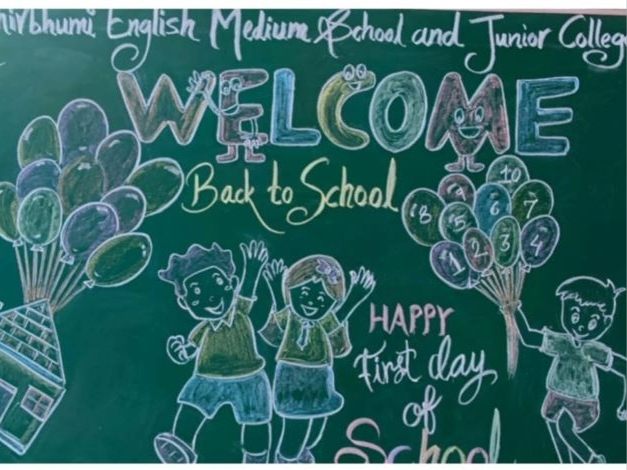 hivbhumi English Medium School and Junior Colleg
WELCOME
Back to School
10
8 9 6 7
5
1 2 3 4
HAPPY
First day
of
School